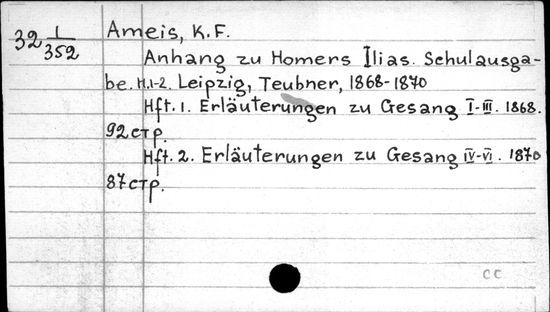 32 1/352
Ameis, K.F.
Anhang zu Homers Ilias. Schulausga-
be. H.1-2. Leipzig, Teubner, 1868-1870
Hft. 1. Erläuterungen zu Gesang I-III. 1868.
92 стр.
Hft. 2. Erläuterungen zu Gesang IV-VI. 1870
87 стр.
CC